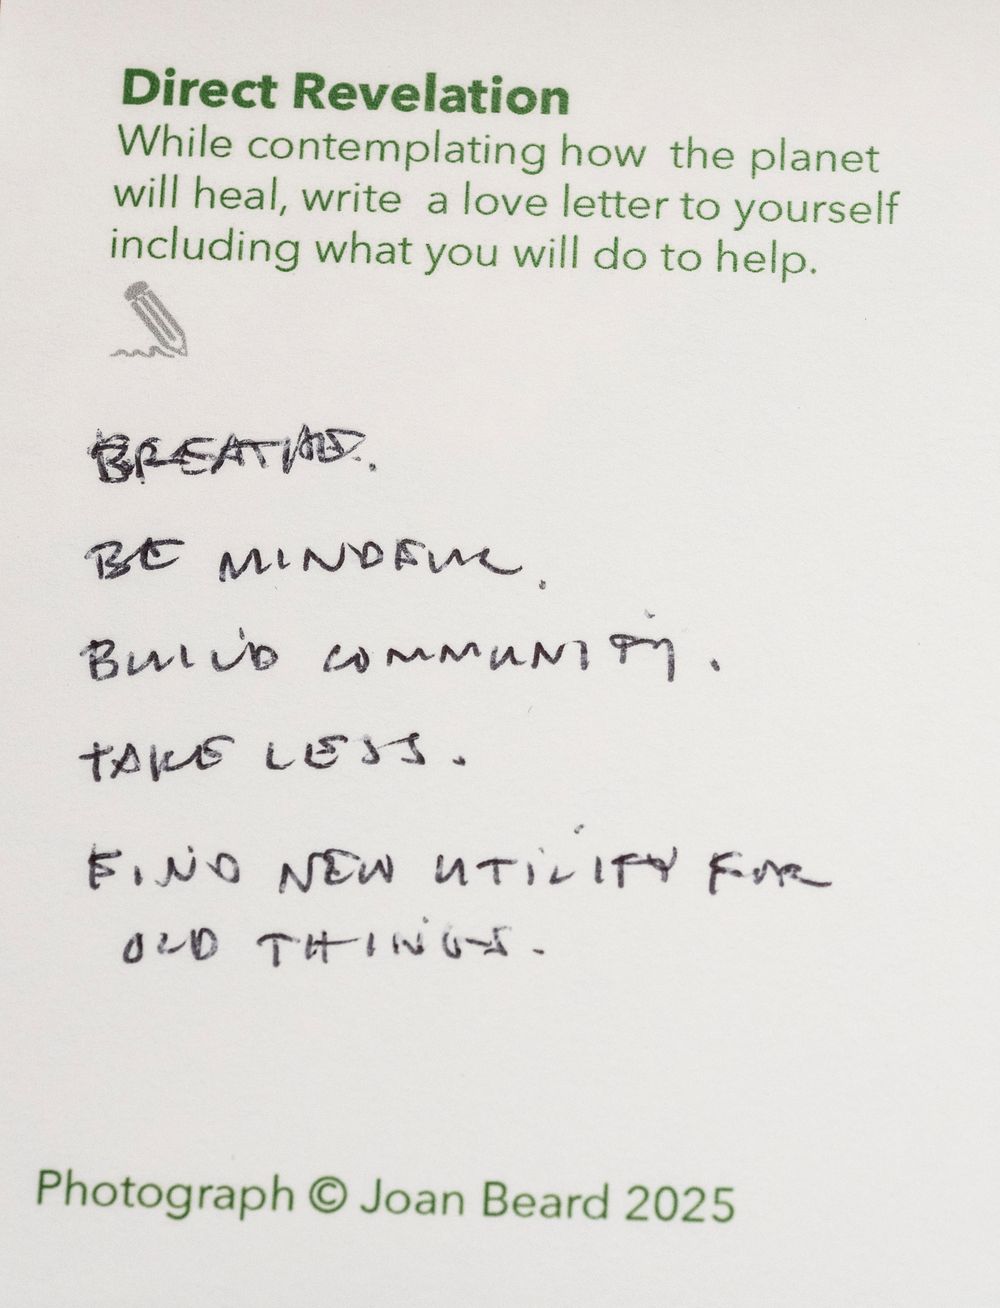 Direct Revelation
While contemplating how the planet
will heal, write a love letter to yourself
including what you will do to help.
BREATHE.
BE MINDFUL.
BUILD COMMUNITY.
TAKE LESS.
FIND NEW UTILITY FOR
OLD THINGS.
Photograph © Joan Beard 2025